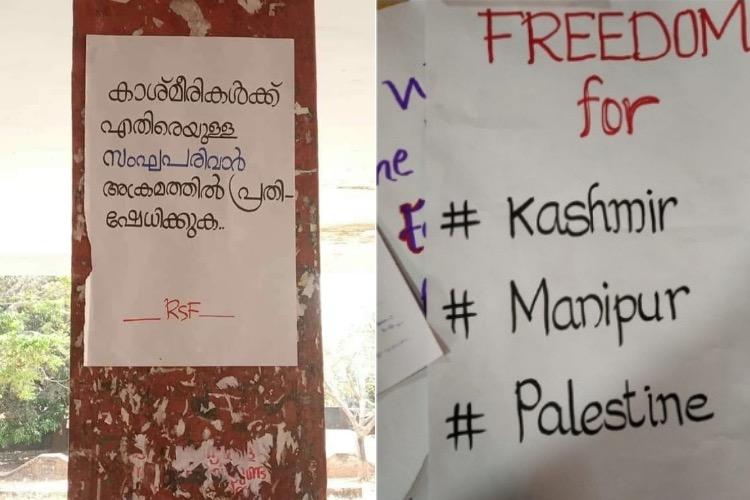 കാശ്മീരികൾക്ക്
എതിരെയുള്ള
സംഘപരിവാർ
അക്രമത്തിൽ പ്രതി-
ഷേധിക്കുക..
RSF
FREEDOM
for
# Kashmir
# Manipur
# Palestine